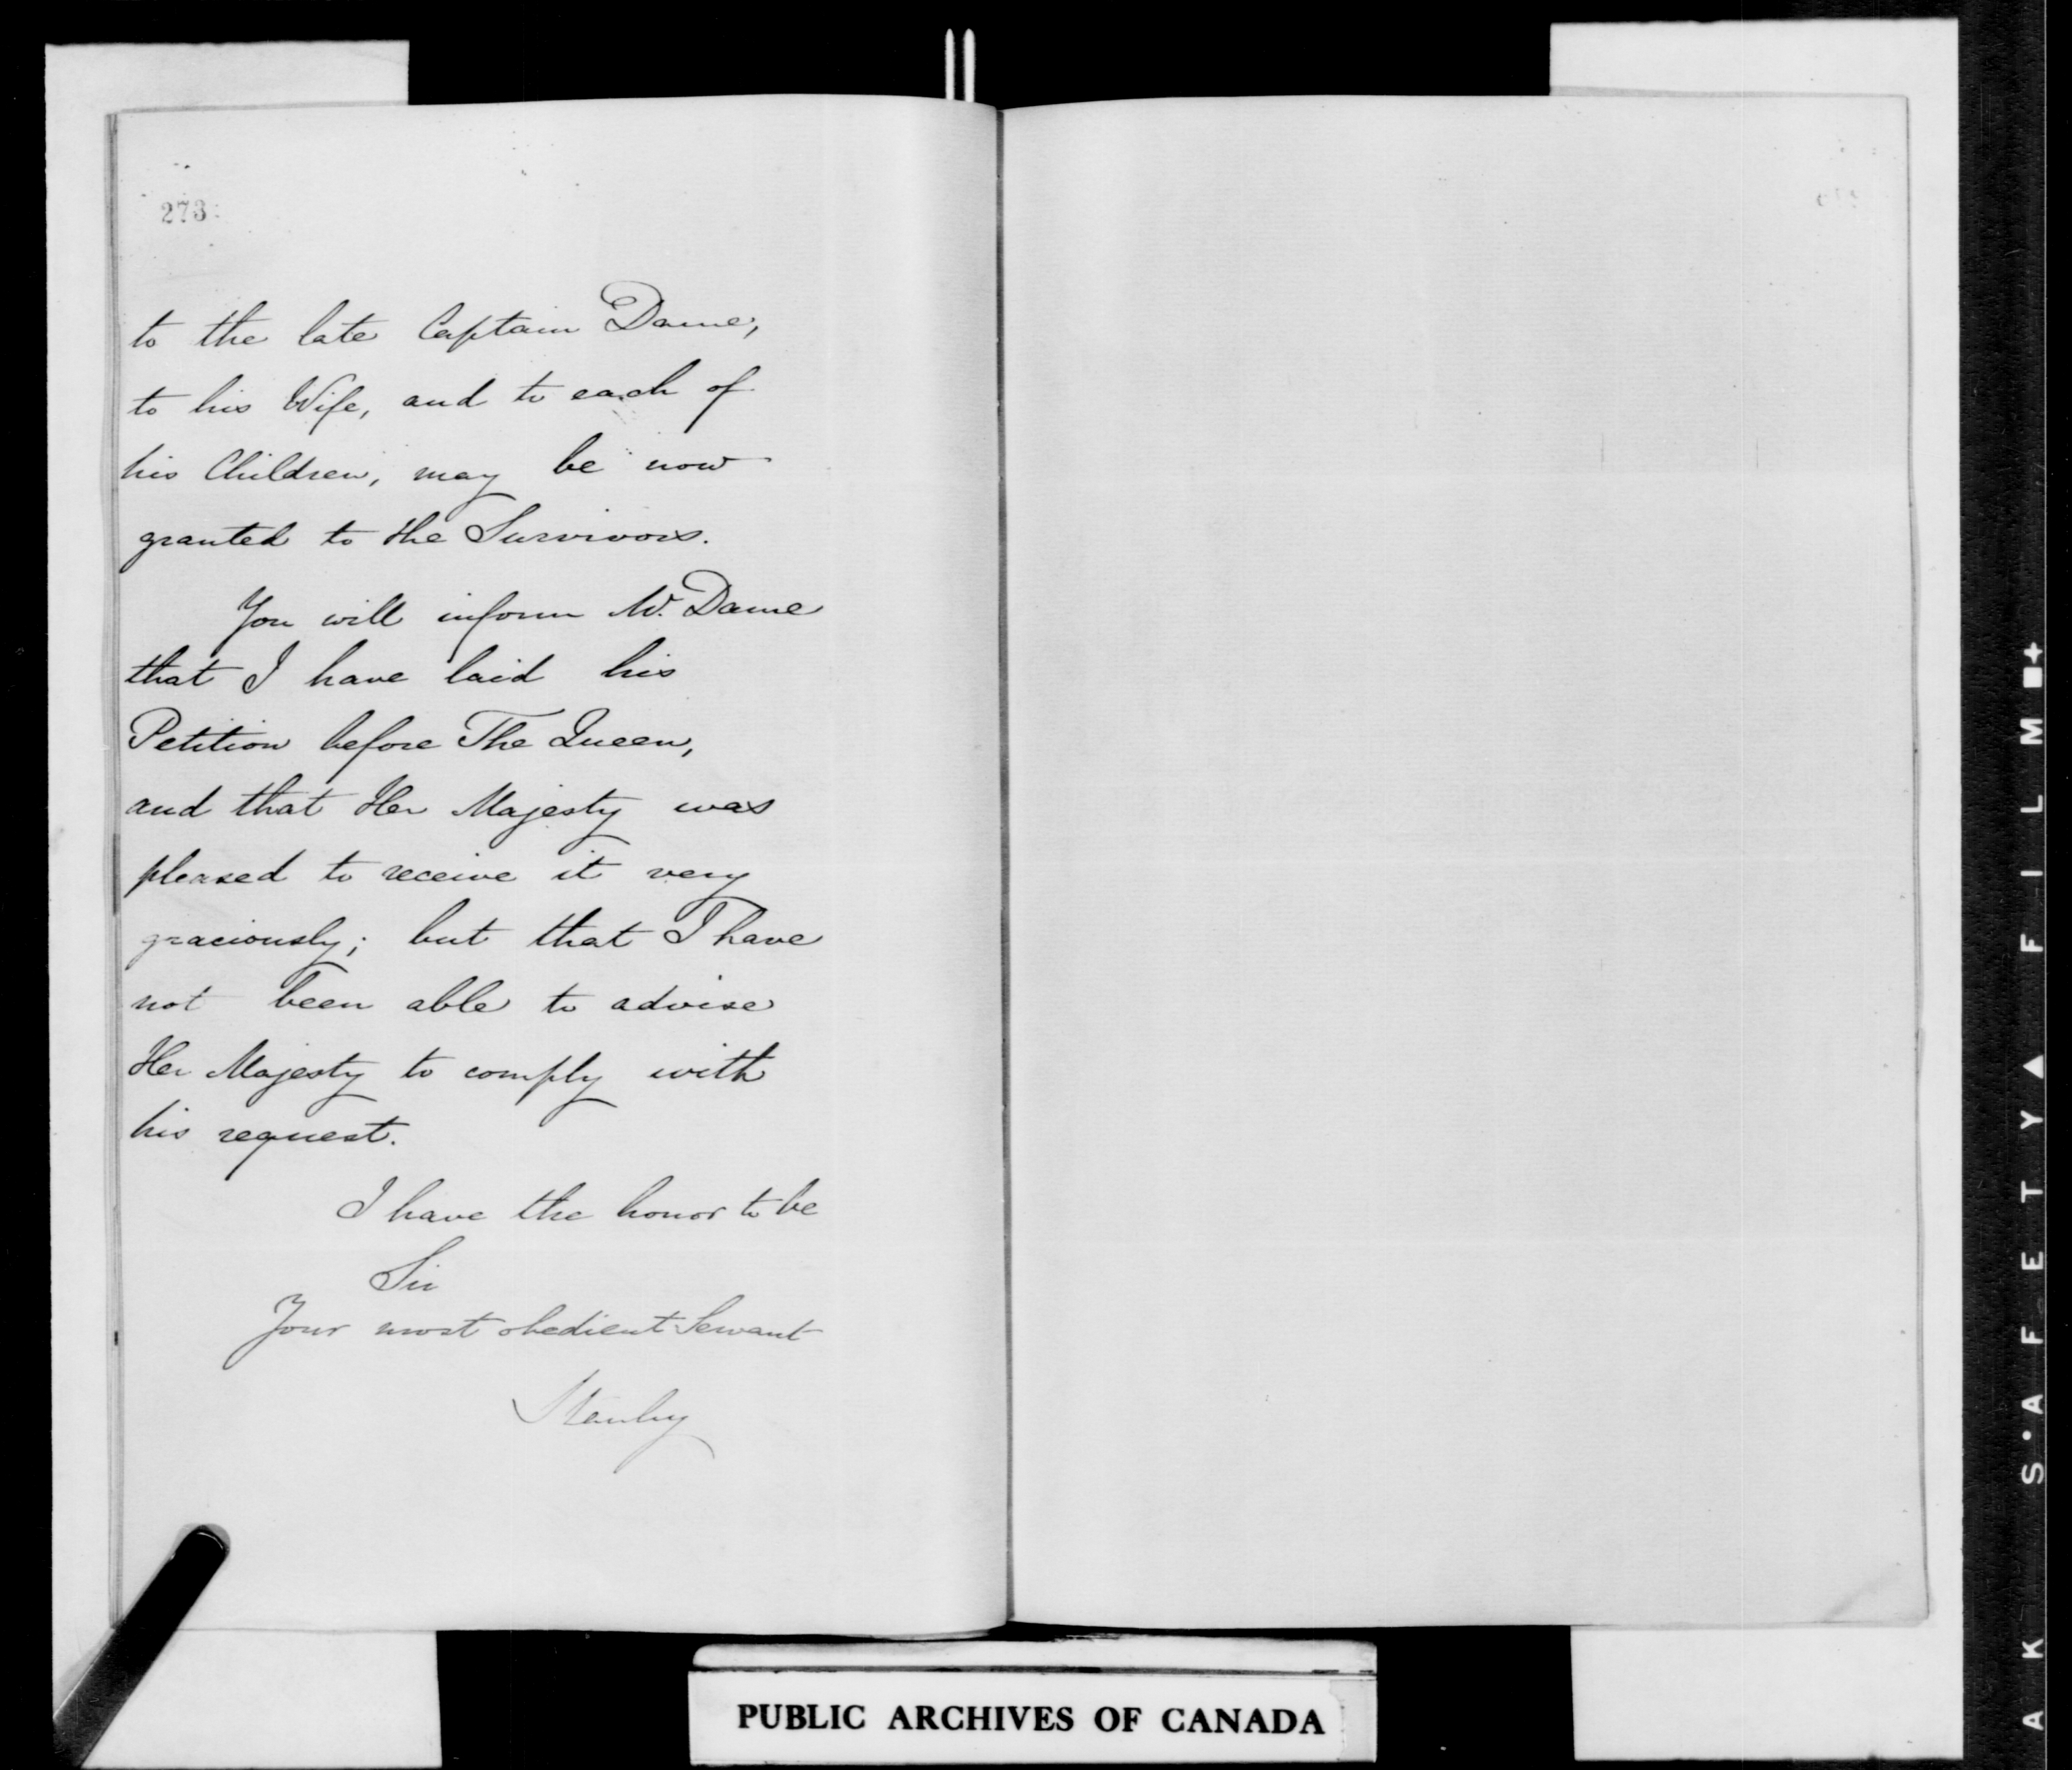 273
to the late Captain Dame,
to his Wife, and to each of
his Children, may be now
granted to the Survivors.
You will inform Mr. Dame
that I have laid his
Petition before The Queen,
and that Her Majesty was
pleased to receive it very
graciously; but that I have
not been able to advise
Her Majesty to comply with
his request.
I have the honor to be
Sir
Your most obedient Servant
Stanley
PUBLIC ARCHIVES OF CANADA
A K S•A F E T Y ▲ F I L M ■+